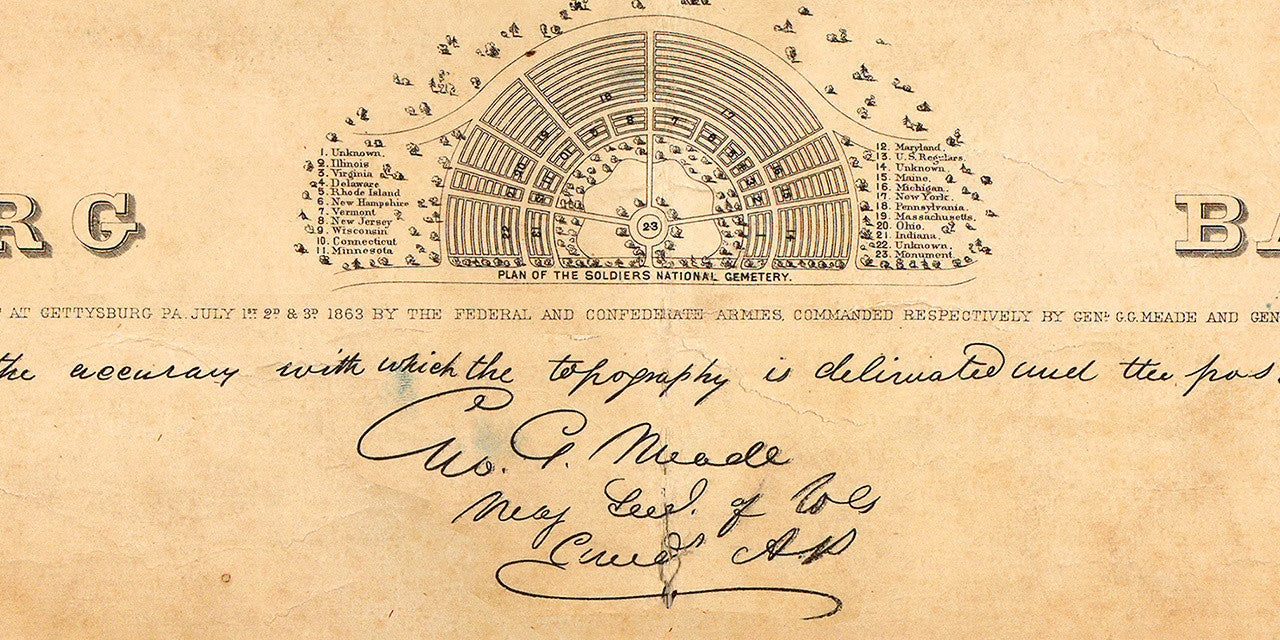 RG
BA
1. Unknown.
2. Illinois
3. Virginia
4. Delaware
5. Rhode Island
6. New Hampshire
7. Vermont
8. New Jersey
9. Wisconsin
10. Connecticut
11. Minnesota
12. Maryland.
13. U.S. Regulars.
14. Unknown.
15. Maine.
16. Michigan.
17. New York.
18. Pennsylvania.
19. Massachusetts.
20. Ohio.
21. Indiana.
22. Unknown.
23. Monument
18
17
8
7
23
PLAN OF THE SOLDIERS NATIONAL CEMETERY.
AT GETTYSBURG PA. JULY 1ST 2D & 3D 1863 BY THE FEDERAL AND CONFEDERATE ARMIES, COMMANDED RESPECTIVELY BY GENL G.G. MEADE AND GEN
the accuracy with which the topography is delineated and the pos
Geo. G. Meade
Maj Genl. of Vols
Comdg A.P.